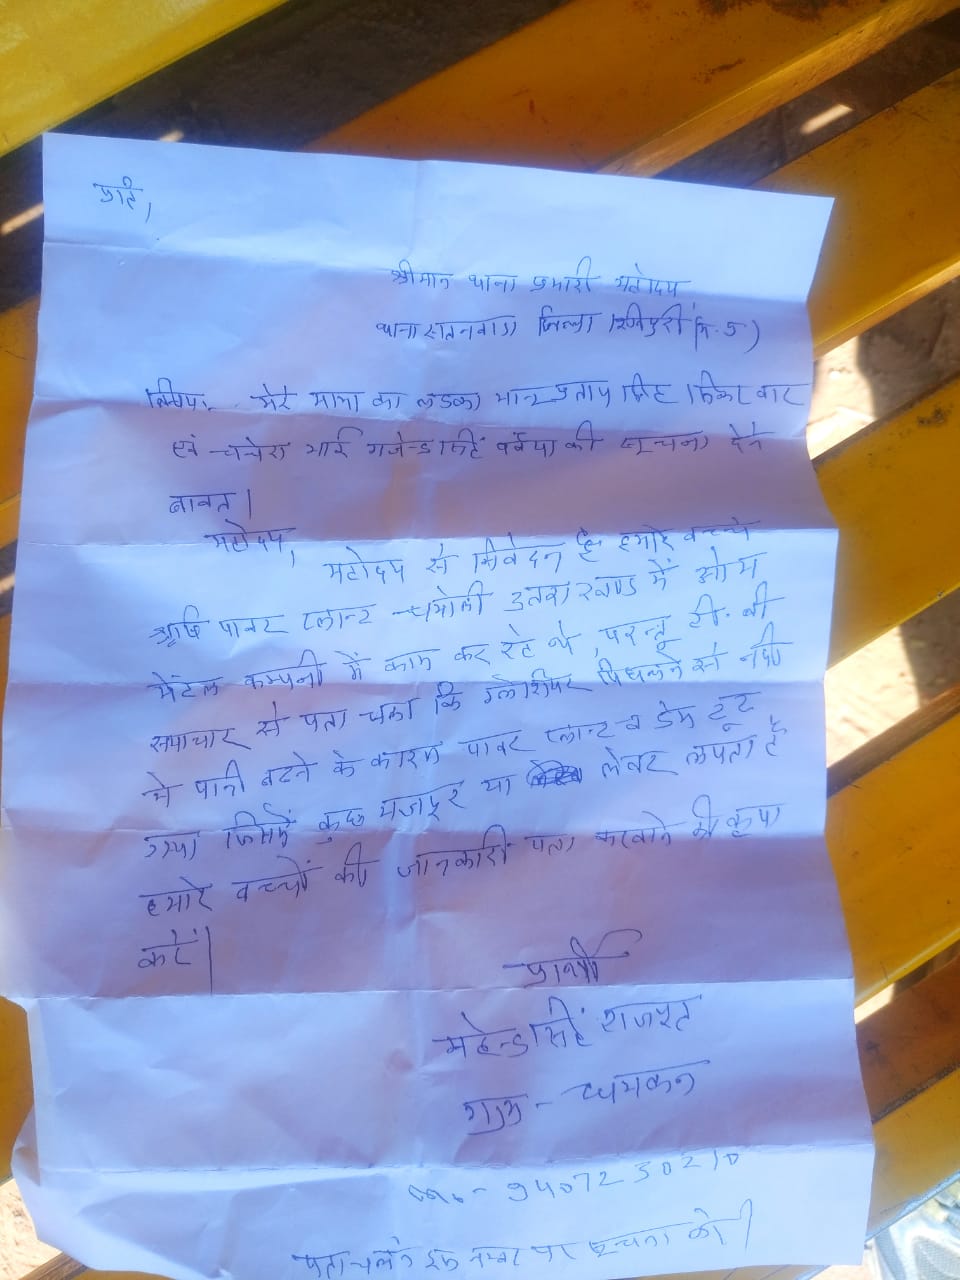 प्रति,
श्रीमान थाना प्रभारी महोदय
थाना सतनवाडा जिला शिवपुरी (म.प्र)
विषय:- मेरे मामा का लडका भानुप्रताप सिंह सिकरवार
एवं चचेरा भाई गजेन्द्र सिंह की सूचना देने
बावत।
महोदय,
महोदय से निवेदन है हमारे बच्चे
ऋषि पावर प्लान्ट चमोली उतराखण्ड में ओम
मेंटल कम्पनी में काम कर रहे थे, परन्तु टी.बी
समाचार से पता चला कि ग्लेशियर पिघलने से नदी
मे पानी बढने के कारण पावर प्लान्ट व डेम टूट
गया जिसमें कुछ मजदूर या लेवर लापता है
हमारे बच्चों की जानकारी पता करवाने की कृपा
करें।
प्रार्थी
महेन्द्र सिंह राजपूत
ग्राम - धमकन
मो.- 9407230210
पता चलने इस नम्बर पर सूचना करे।